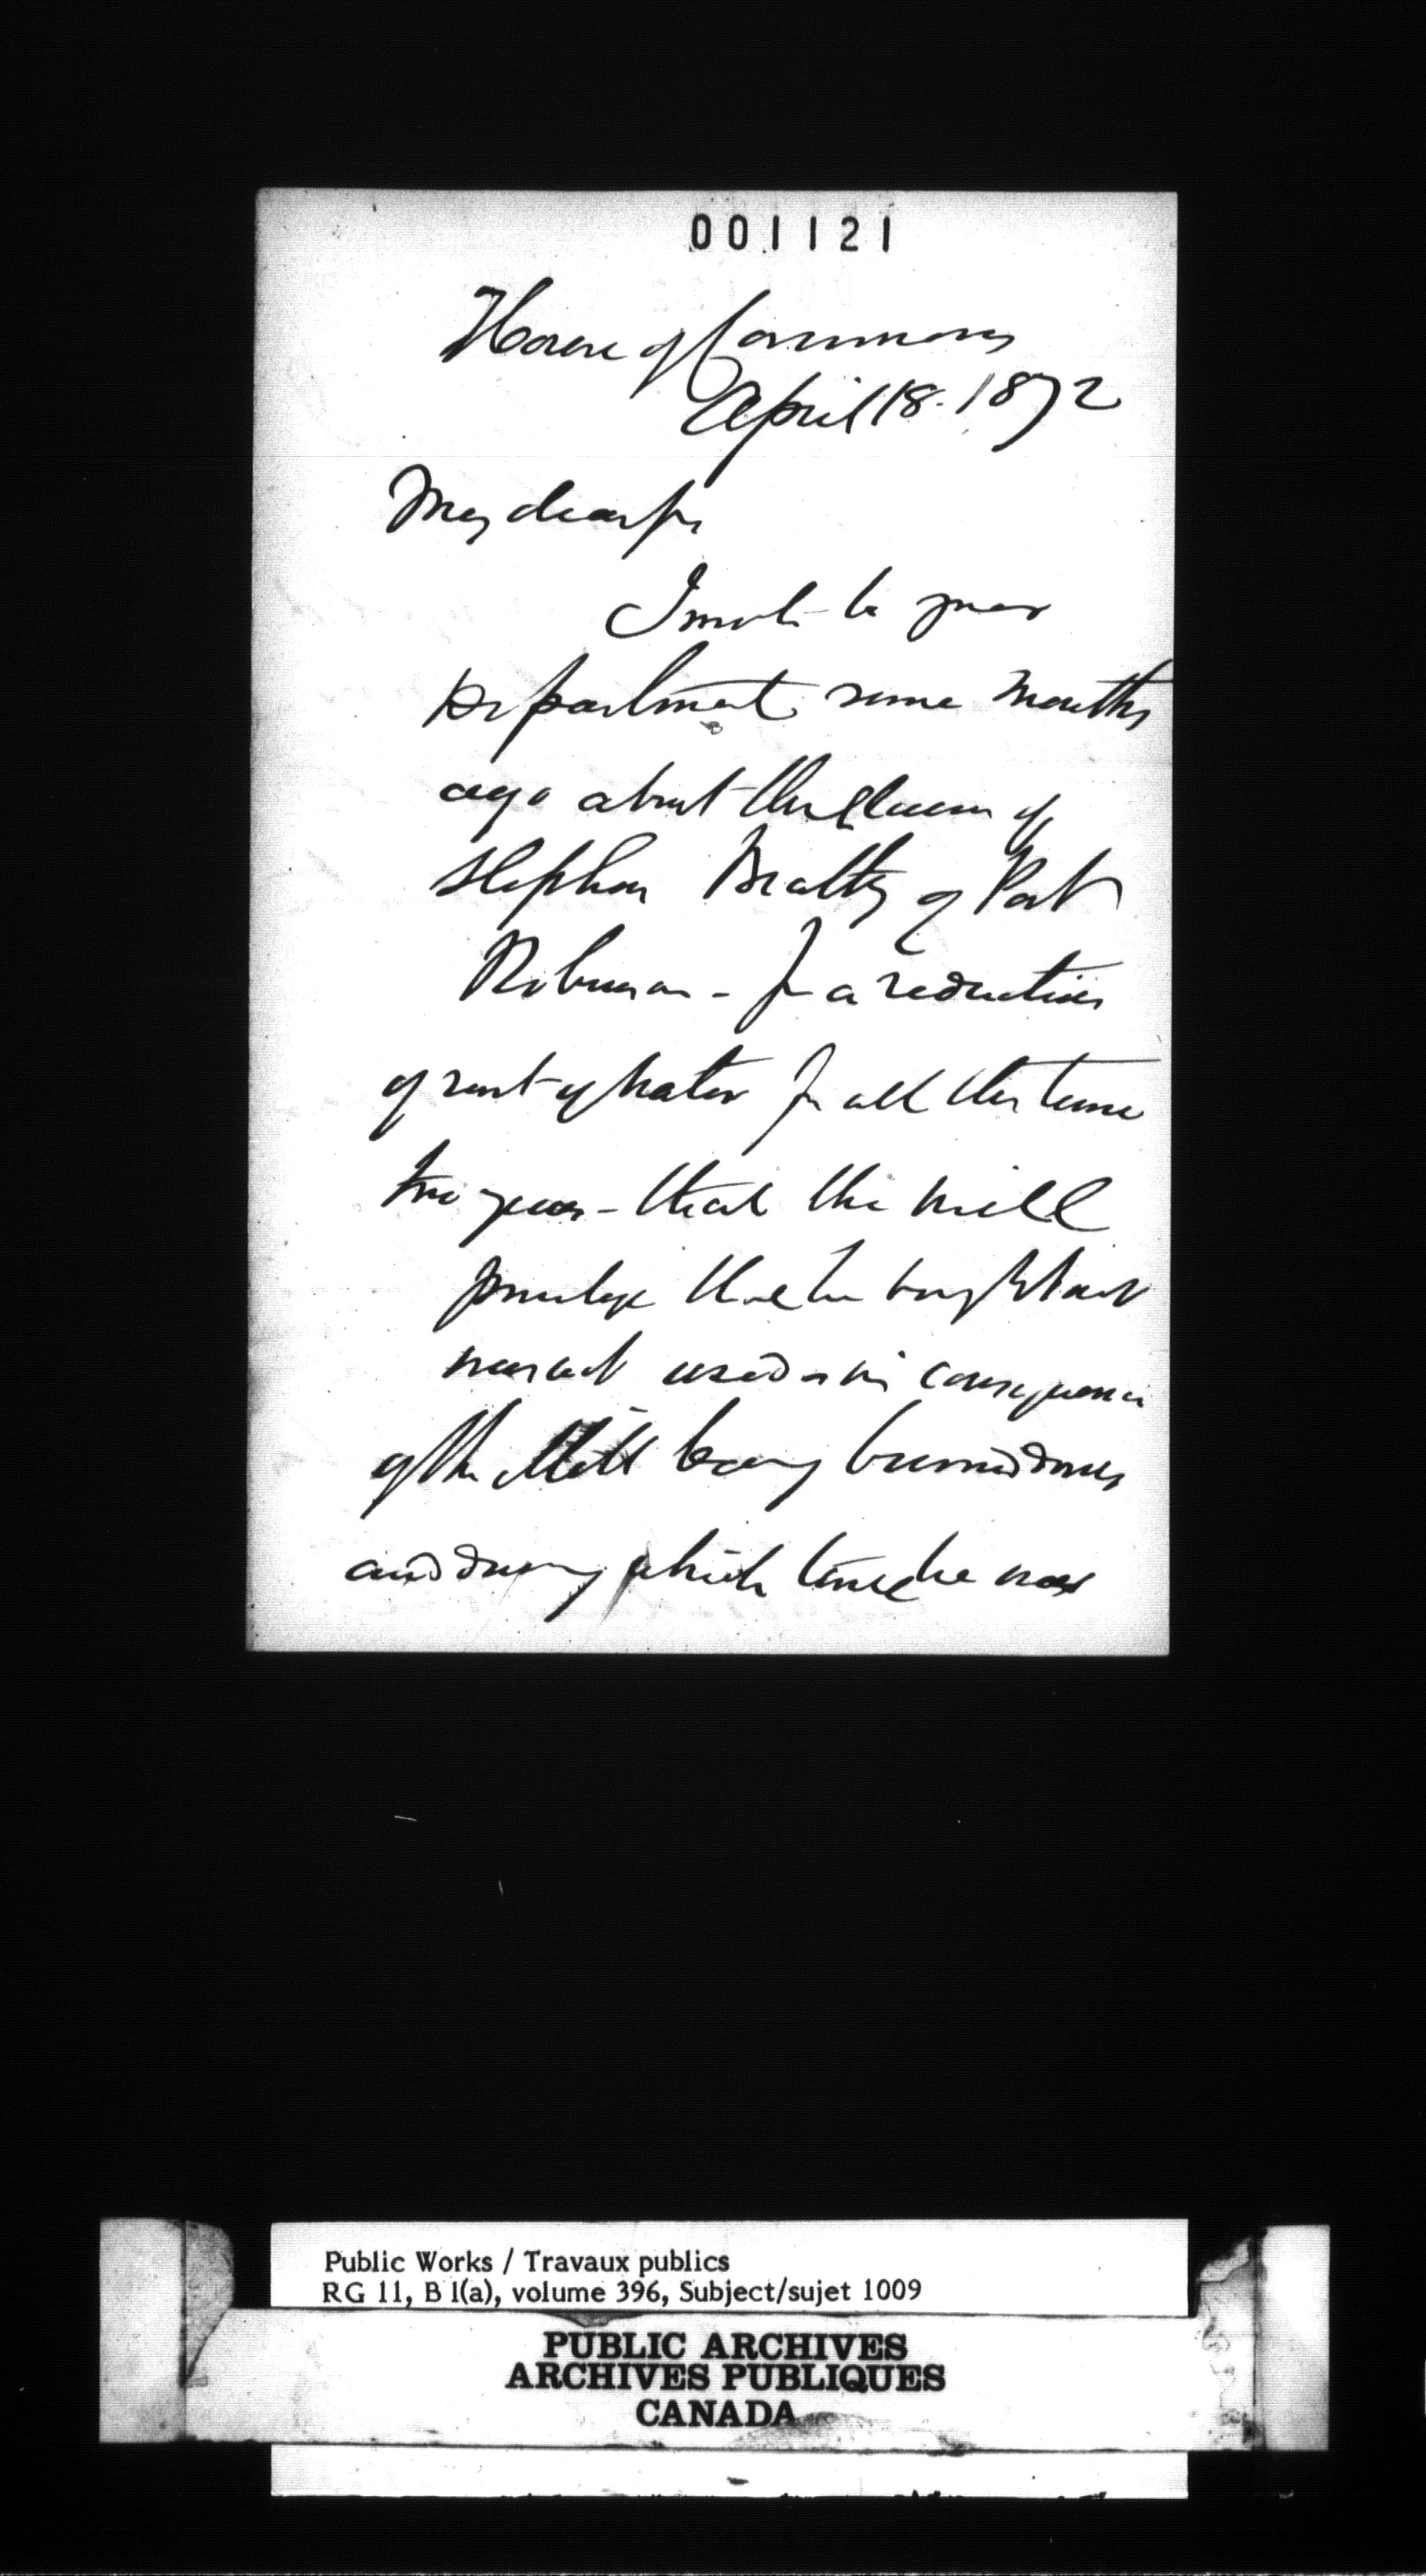 001121
House of Commons
April 18. 1872
My dear Sir
I wrote to your
Department some months
ago about the claim of
Stephen Beatty of Port
Robinson - for a reduction
of rent of water for all the time
two years - that the mill
privilege that he bought
was not used in consequence
of the Mill being burned down
and during which time he was
Public Works / Travaux publics
RG 11, B 1(a), volume 396, Subject/sujet 1009
PUBLIC ARCHIVES
ARCHIVES PUBLIQUES
CANADA